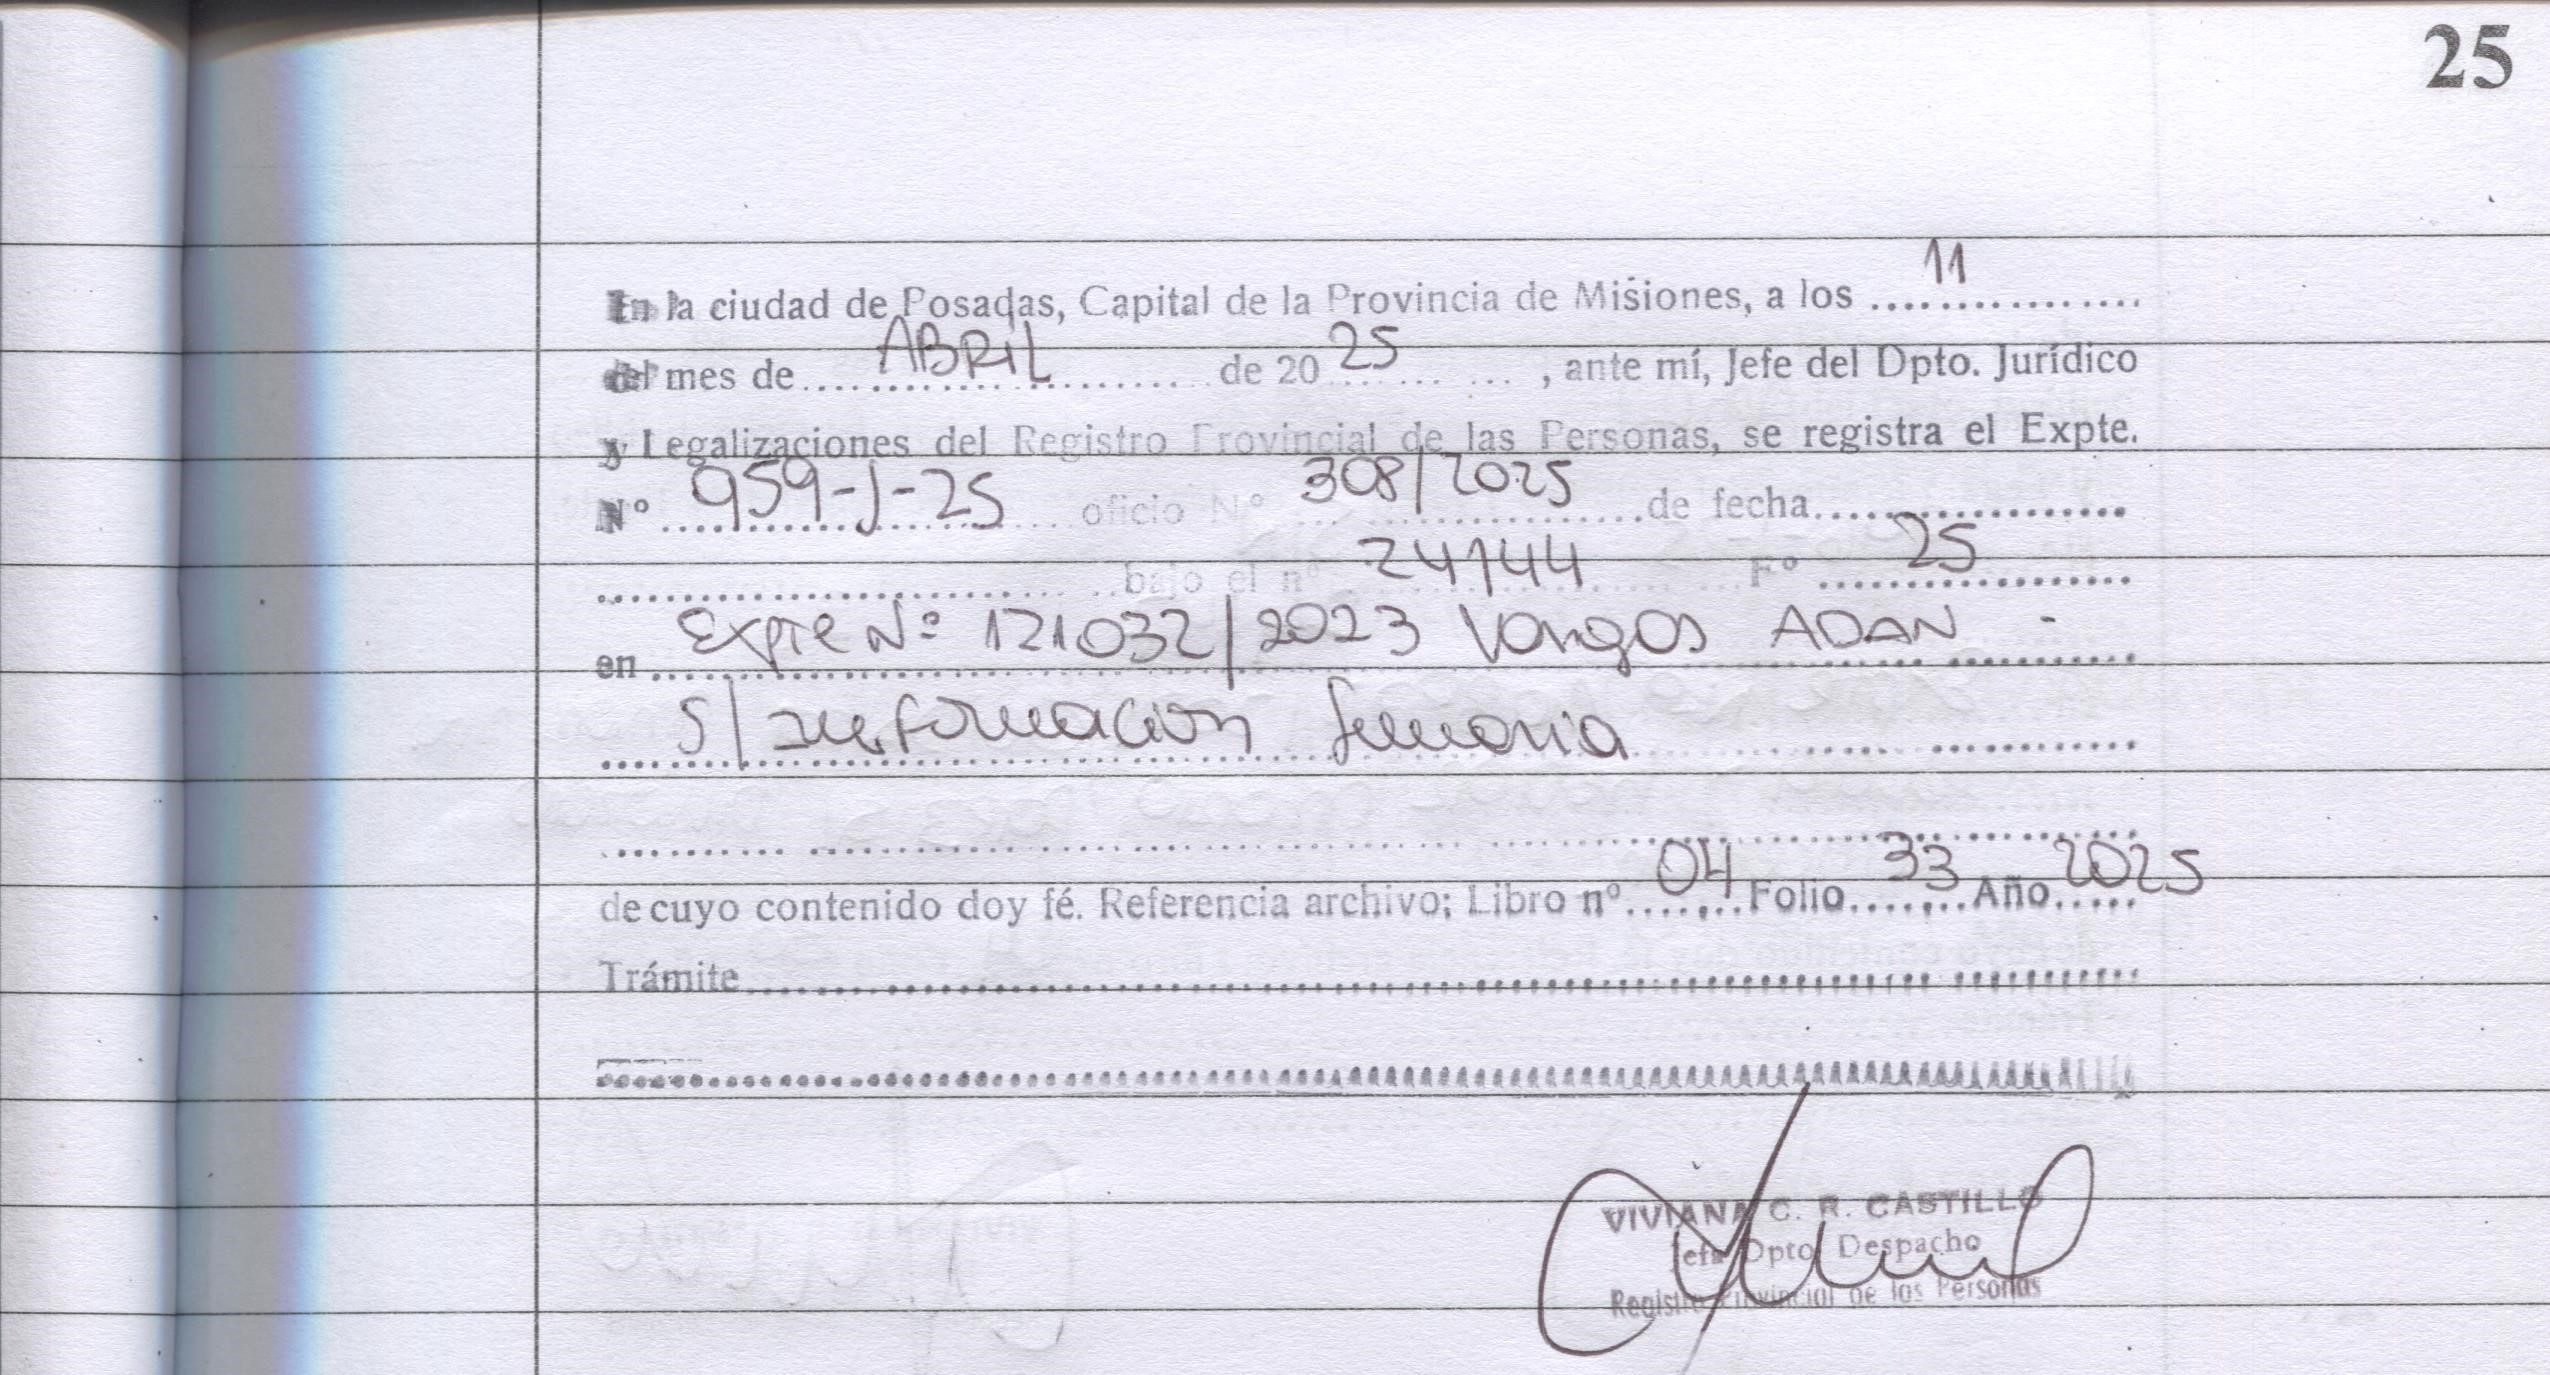 25
En la ciudad de Posadas, Capital de la Provincia de Misiones, a los 11
del mes de ABRIL de 20 25, ante mí, Jefe del Dpto. Jurídico
y Legalizaciones del Registro Provincial de las Personas, se registra el Expte.
Nº 959-J-25 oficio Nº 308/2025 de fecha
bajo el nº 24144 Fº 25
en Expte Nº 121032/2023 Vargas ADAN -
S/ Información Sumaria
de cuyo contenido doy fé. Referencia archivo; Libro nº 04 Folio 33 Año 2025
Trámite
VIVIANA C. R. CASTILLO
Jefa Dpto Despacho
Registro Provincial de las Personas